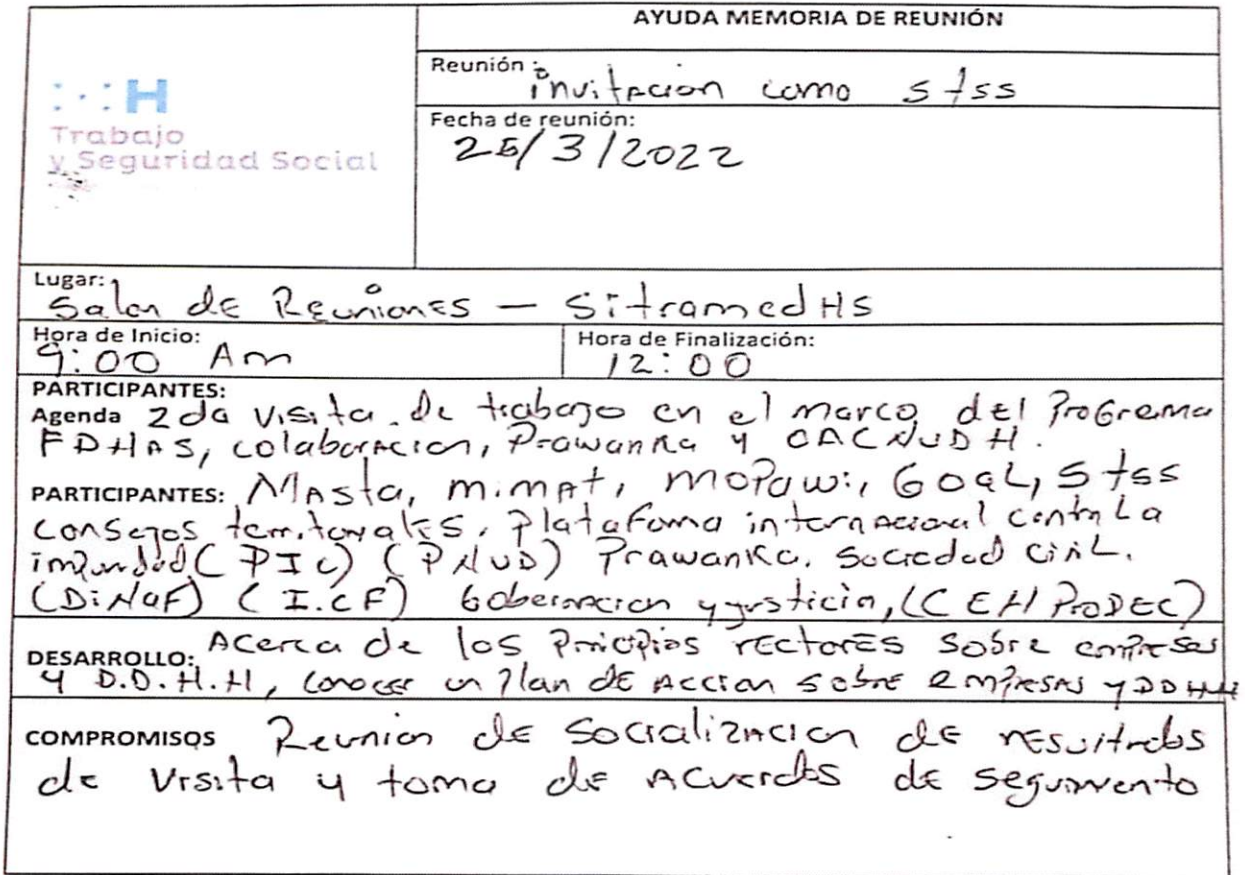 AYUDA MEMORIA DE REUNIÓN
H
Trabajo
y Seguridad Social
Reunión: invitacion como stss
Fecha de reunión:
25/3/2022
Lugar:
Salon de Reuniones - SitramedHs
Hora de Inicio:
9:00 Am
Hora de Finalización:
12:00
PARTICIPANTES:
Agenda 2da visita de trabajo en el marco del ProGrama
FDHAS, colaboracion, Prawanka y OACNUDH.
PARTICIPANTES: MAsta, mimAt, moPawi, GOaL, Stss
consejos territoriales, Plataforma internacional contra La
impunidad (PIc) (PNUD) Prawanka, Sociedad civil.
(DiNaF) (I.CF) Gobernacion y justicia, (CEHProDEC)
DESARROLLO: Acerca de los Principios rectores sobre empresas
y D.D.H.H, conocer un Plan de Accion sobre empresas y DDHH
COMPROMISOS Reunion de Socializacion de resultados
de visita y toma de Acuerdos de seguimiento